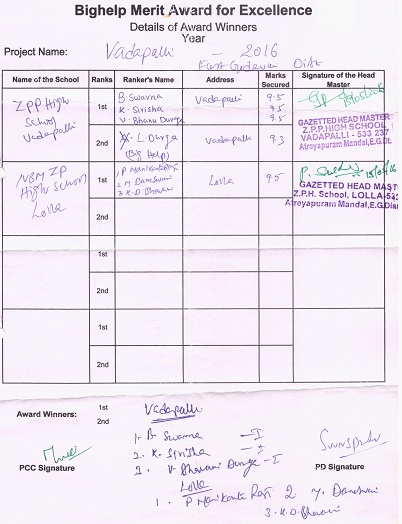 Bighelp Merit Award for Excellence
Details of Award Winners
Year
Project Name: Vadapalli - 2016
East Godavari Dist
Name of the School Ranks Ranker's Name Address Marks Secured Signature of the Head Master
ZPP High School Vadapalli
1st
B. Swarna 9.5
K. Sirisha Vadapalli 9.5
V. Bhanu Durga 9.5
GAZETTED HEAD MASTER
Z.P.P.HIGH SCHOOL
VADAPALLI - 533 237
Atreyapuram Mandal, E.G.Dt.
2nd
L Durga Vadapalli 9.3
(Big Help)
NBM ZP High School Lolla
1st
1. P Manikanta Raj
2. M Daneswari Lolla 9.5
3. K.D Bhavani
GAZETTED HEAD MAST
Z.P.H. School, LOLLA-532
Atreyapuram Mandal, E.G.Dist
2nd
1st
2nd
1st
2nd
Award Winners: 1st Vadapalli
2nd
1. B. Swarna - I
2. K. Sirisha - I
3. V Bhavani Durga - I
PCC Signature
PD Signature
Lolla
1. P Manikanta Raj 2 M. Daneswari
3. K.D. Bhavani